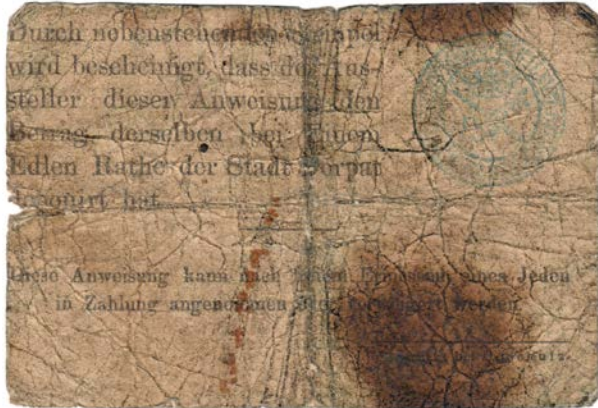 Durch nebenstehenden Stempel
wird bescheinigt, dass der Aus-
steller dieser Anweisung den
Betrag derselben bei Einem
Edlen Rathe der Stadt Dorpat
deponirt hat.
Diese Anweisung kann nach Ermessen eines Jeden
in Zahlung angenommen oder verweigert werden